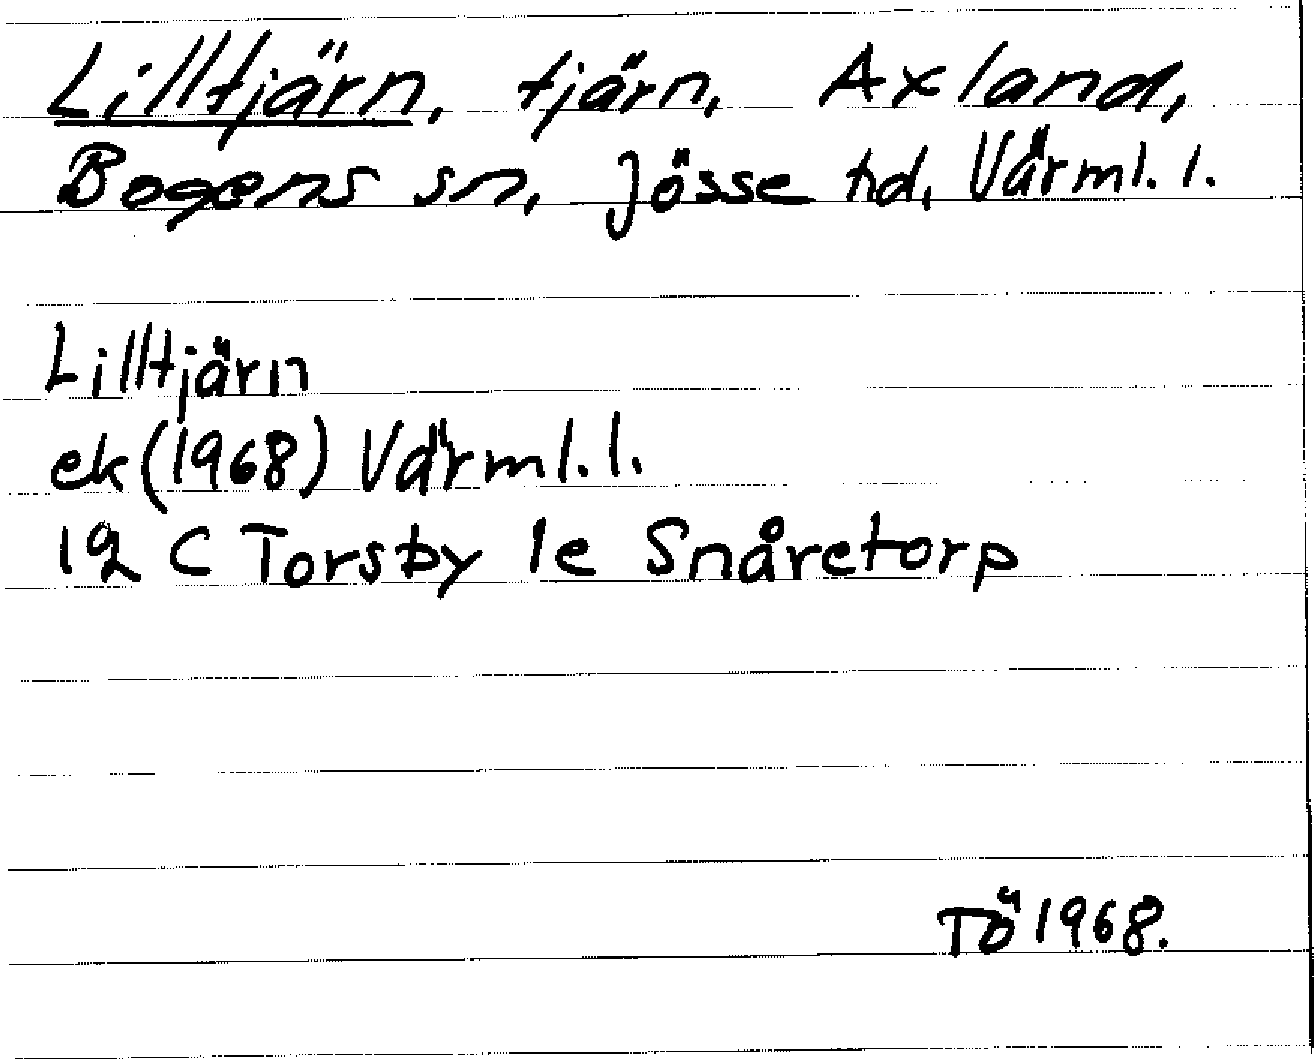 Lilltjärn, tjärn, Axland,
Bogens sn, Jösse hd, Värml. l.
Lilltjärn
ek (1968) Värml. l.
12 C Torsby 1e Snåretorp
Tö 1968.